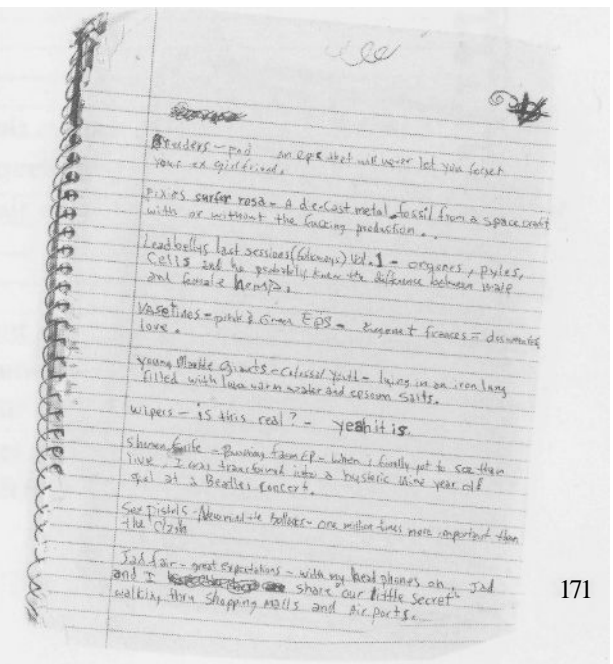 Breeders - pod an epic that will never let you forget
your ex girlfriend.
Pixies surfer rosa - A die-cast metal fossil from a space craft
with or without the fucking production..
Leadbellys last sessions (folkways) Vol. 1 - orgones, pyles,
cells and he probably knew the difference between male
and female hemp.
Vaselines - pink & Green EPs - Eugene & frances =
love.
young Marble Giants - Colossal Youth - lying in an iron lung
filled with luke warm water and epsom salts.
Wipers - is this real? - yeah it is.
shonen knife - Burning farm EP - when i finally got to see them
live, I was transformed into a hysteric nine year old
girl at a Beatles concert.
Sex Pistols - Nevermind the bollocks - one million times more important than
the Clash
Jad fair - great expectations - with my head phones on, Jad
and I share our little secret
walking thru shopping malls and airports.
171